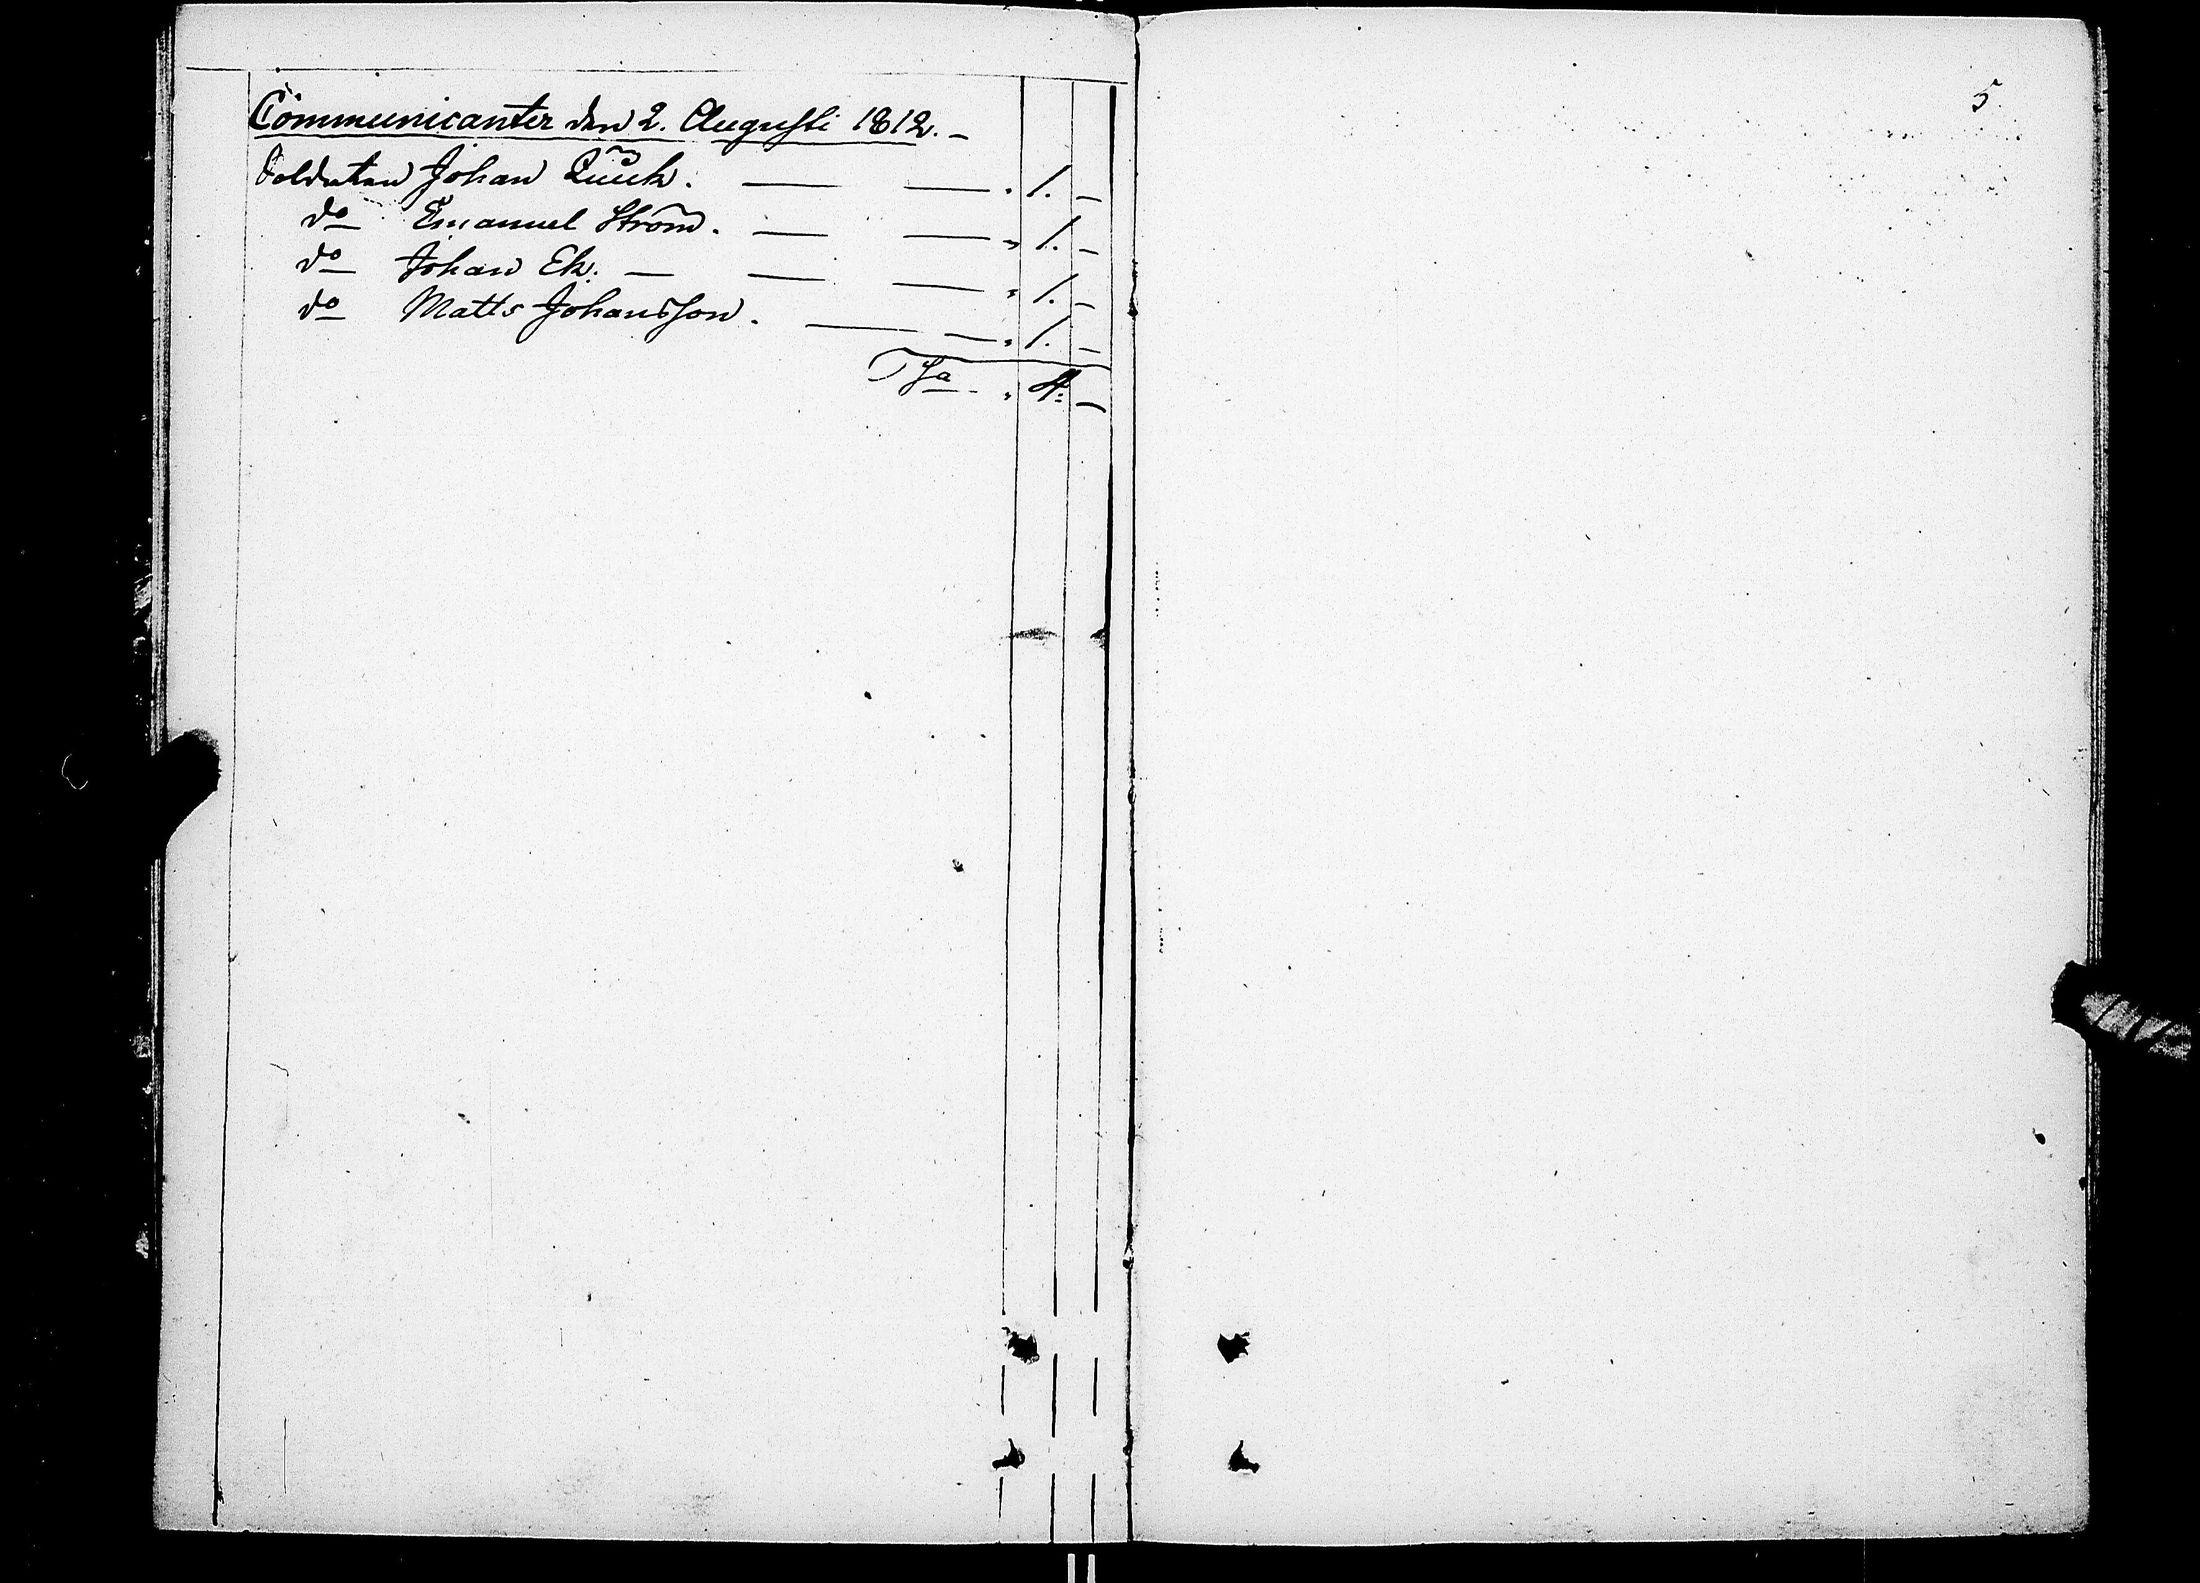 Communicanter den 2. Augusti 1812. -
Soldaten Johan Quick. — — . 1. -
do Emanuel Ström. — — " 1. -
do Johan Ek. — — — " 1. -
do Matts Johansson. — — " 1. -
Sa . 4: -
5